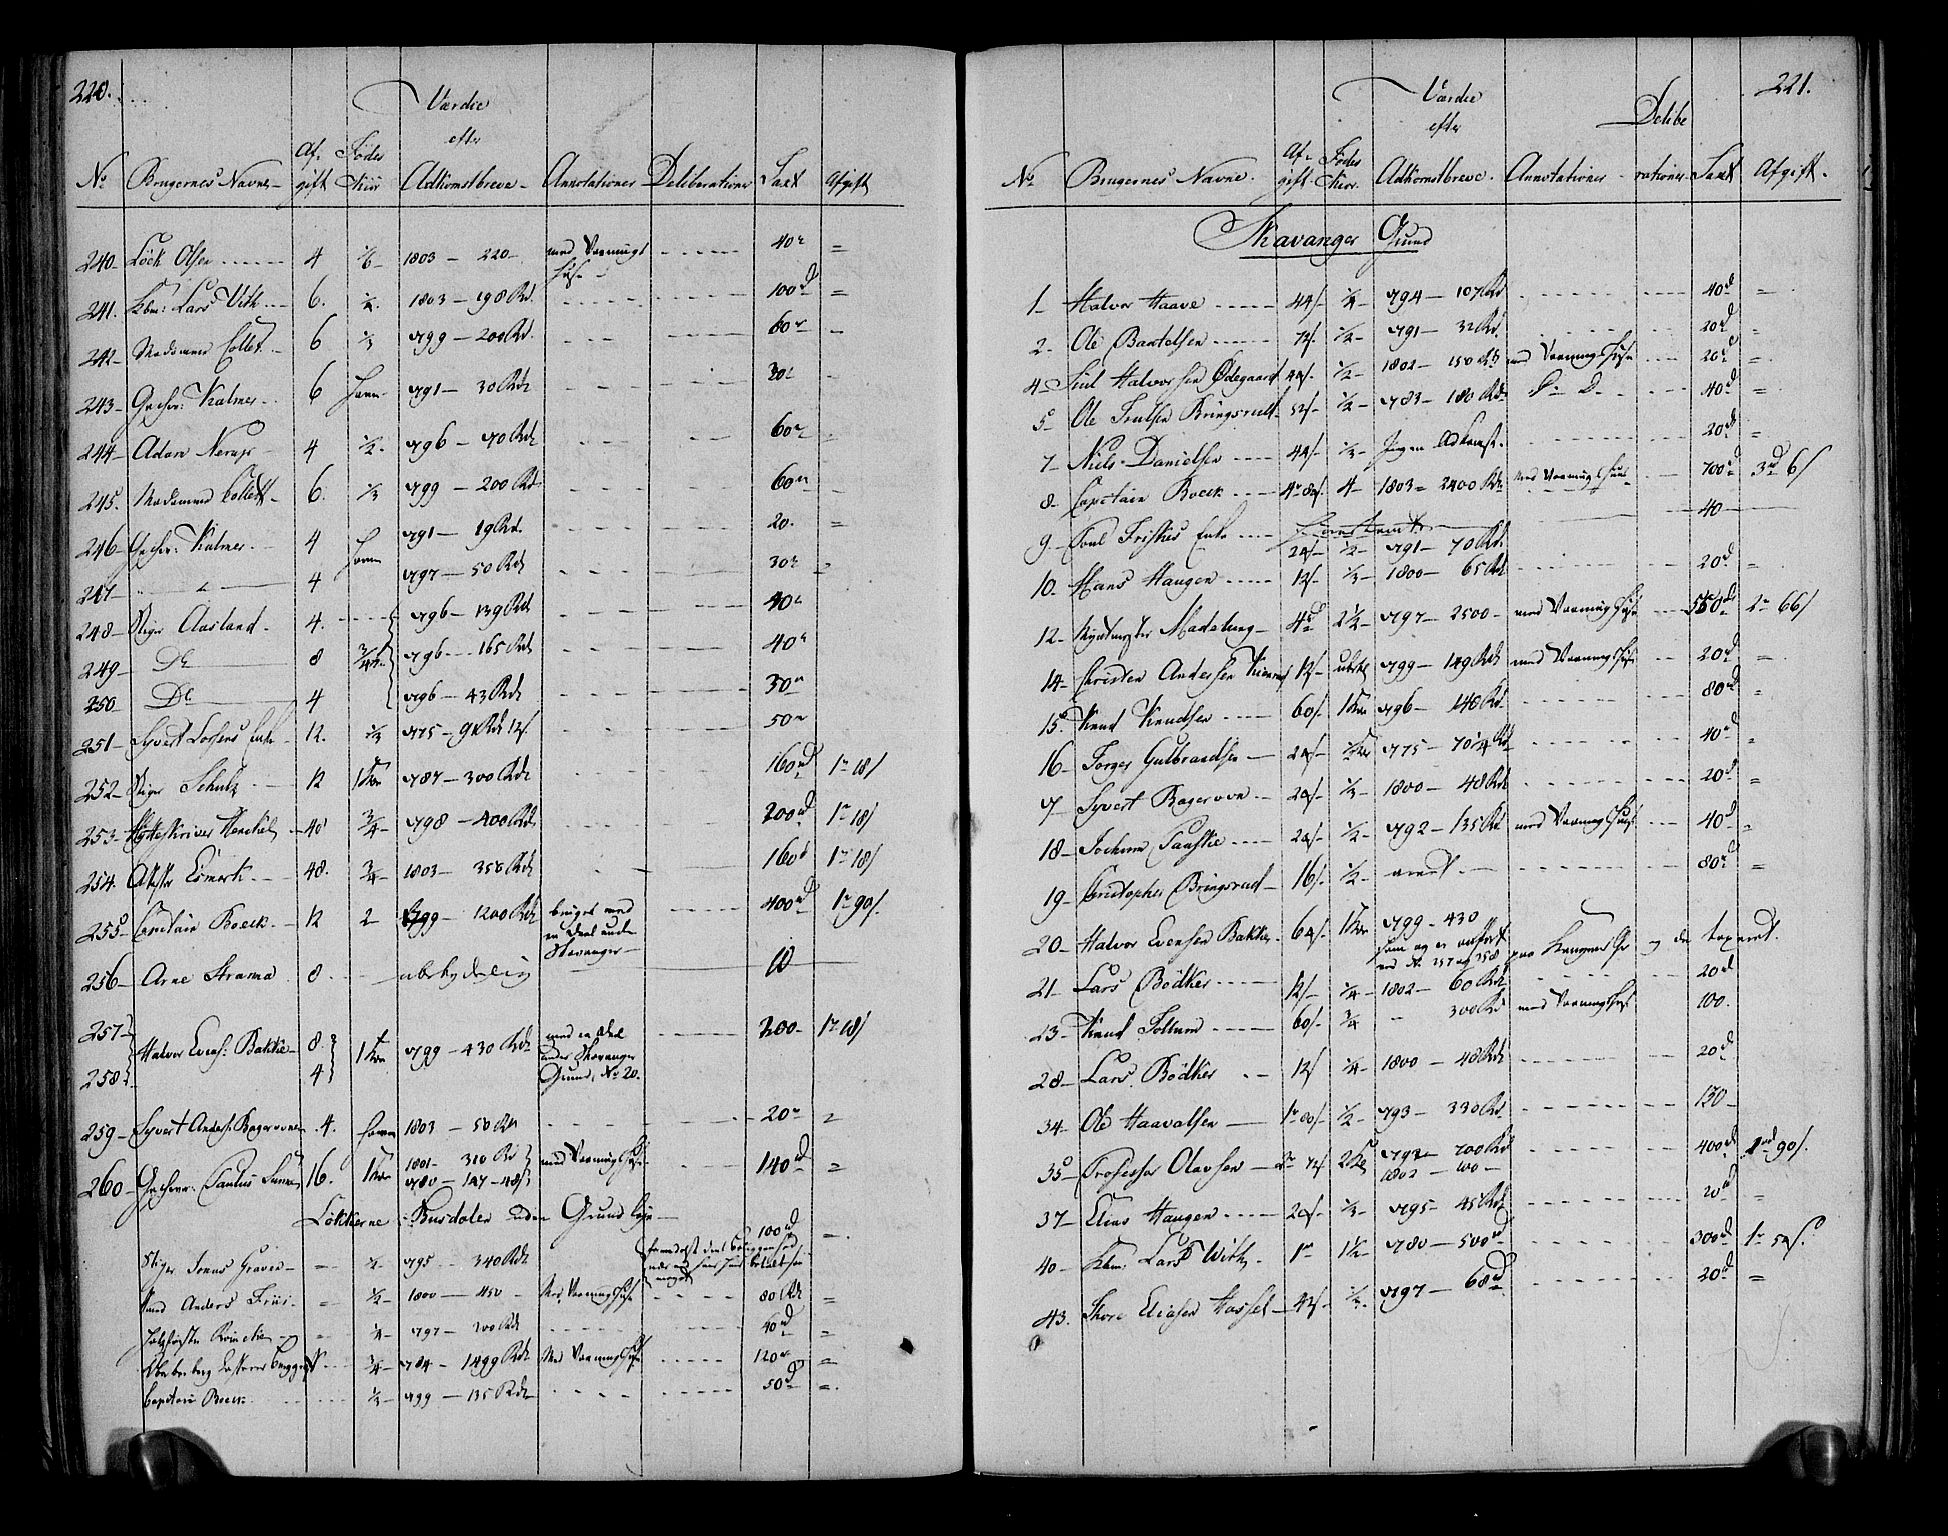 220.
Værdie
efter
Af= Föder
No Brugernes Navne gift kiör Adkomstbreve Annotationer Deliberationer Taxt Afgift
240 Löck Olsen 4 1/6 1803 - 220 med Vaaningshus 40 =
241. Kbm: Lars With 6. 1/2 1803 - 198 Rd. 100 d =
242 Madamme Collet 6 1/3 1799 - 200 Rd. 60
243 Geschw: Kalmer 6 799 1791 - 30 Rd 30
244 Adam Nerup 4 1/2 1796 - 70 Rd 60
245. Madamme Collett 6. 1/3 1799 - 200 Rd 60 =
246 Geschw: Kalmer 4 1791 - 19 Rd. 20. =
247 4 1797 - 50 Rd 30
248 Stiger Aasland 4. 1796 - 139 Rd 40
249 Do 8 1796 - 165 Rd 40
250 Do 4 1796 - 43 Rd 30
251 Syvert Enke 12. 1/3 1775 - 12 s. 50
252 Stiger Schulz 12 1 1787 - 300 Rd 160 d 1 18 s
253 Hytteskriver Henckel 40 3/4 1798 - 400 Rd 200 d 1 18 s
254. Esmark 48. 3/4 1803 - 350 Rd 160 1 18 s
255 Capitain Boeck 12 2 1799 - 1200 Rd bruges med en Deel under Skavanger 400 d 1 90 s.
256 Arne Strama 8 ubetydelig 10
257 258 Halvor Evens: Bakke 8. 4 1 1799 - 430 Rd med en Deel under Skavanger Grund, No 20. 200 1 18 s
259 Syvert Anders: Bagerovne 4. 1803 - 50 Rd 20 =
260 Geschwr. Paulus 16. 1 1801 - 310 Rd 1780 - 147 - 48 s med Vaaningshus 140 d =
Lökkerne i Busdalen uden Grundleje
Stiger Jonas Graven = 1/2 1795 - 340 Rd 100 d =
Anders Friis = 1/2 1800 - 450 Med Vaaningshus 80 Rd =
= 1/4 1797 - 300 Rd 40 d =
3/4 1784 - 1499 Rd Med Vaaningshus 120 =
Capitain Boeck 1/2 1799 - 135 Rd 50 d =
221.
Værdie
efter
Delibe
Af= Födes
No Brugernes Navne. gift kiör. Adkomstbreve. Annotationer rationer Taxt Afgift.
Skavanger Grund
1 Halvor Haave 44 s 1/4 1794 - 107 Rd 40 d =
2 Ole Bartelsen 12 s. 1/2 1791 - 32 Rd. 20 d =
4 Halvorsen Ödegaard 24 s 1/2 1802 - 150 Rd med Vaaningshus 20 d =
5 Ole Trulsen Bringsrud 52 s 1/2 1783 - 180 Rd Do Do 40 d =
7 Niels Danielsen 44 s 1/3 Ingen Adkomst. 20 d =
8 Capitain Boeck 4 80 s. 4 1803 = 2400 Rd med Vaaningshus 700 d 3 d 6 s
9 Poul Friskes Enke 24 s 1/2 1791 - 70 Rd 40
10 Hans Haugen 12 s 1/3 1800 - 65 Rd 20 d =
12 Madelung 4 d 2 1/2 1797 - 2500 med Vaaningshus 550 d 2 66 s
14 Christen Andersen 12 s 1799 - 149 Rd med Vaaningshus 20 d =
15. Knud Knudsen 60 s. 1 1796 - 140 Rd 80 d =
16 Torger Gulbrandsen 24 s 1775 - 70 1/4 Rd 40 d =
17 Syvert Bagerovn 24 s 1/3 1800 - 48 Rd 20 d =
18 Jochum Fauske 24 s 1/2 1792 - 135 Rd med Vaaningshus 40 d =
19 Cristopher Bringsrud 16 s. 1/2 arvedt 80 d =
20 Halvor Evensen Bakke 64 s. 1 1799 - 430
som og er anfört ved No 257 og 258 paa og der taxeret.
21 Lars Bödker 12 s 1/4 1802 - 60 Rd 20 d
23 Knud Sollum 60 s. 3/4 - 300 Rd med Vaaningshus 100.
28 Lars Bödker 12 s 1/4 1800 - 48 Rd 20 d
34 Ole Haavalsen 1 80 s. 1/2 1793 - 330 Rd 130
35 Professor Olavsen 2 72 s 2 1792 - 700 Rd 1802 - 100 400 d 1 rd 90 s.
37 Elias Haugen 24 s 1/3 1795 - 45 Rd 20 d =
40 Kbm: Lars With 1 1 1/2 1780 - 500 d 300 d 1 54 s.
43. Thore Eliasen Hassel 42 s 1/2 1797 - 68 d 20 d =